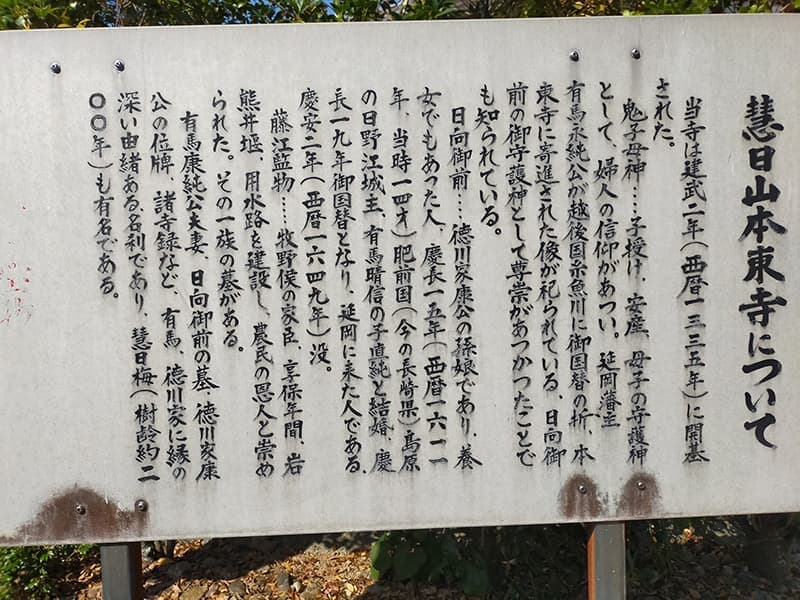 慧日山本東寺について
当寺は建武二年(西暦一三三五年)に開基
された。
鬼子母神‥‥子授け、安産、母子の守護神
として、婦人の信仰があつい。延岡藩主
有馬永純公が越後国糸魚川に御国替の折、本
東寺に寄進された像が祀られている、日向御
前の御守護神として尊崇があつかつたことで
も知られている。
日向御前‥‥徳川家康公の孫娘であり、養
女でもあった人、慶長一五年(西暦一六一一
年、当時一四才)肥前国(今の長崎県)島原
の日野江城主、有馬晴信の子直純と結婚、慶
長一九年御国替となり、延岡に来た人である、
慶安二年(西暦一六四九年)没。
藤江監物‥‥牧野侯の家臣、享保年間、岩
熊井堰、用水路を建設し、農民の恩人と崇め
られた。その一族の墓がある。
有馬康純公夫妻、日向御前の墓、徳川家康
公の位牌、諸寺録など、有馬、徳川家に縁の
深い由緒ある名刹であり、慧日梅(樹齢約二
〇〇年)も有名である。